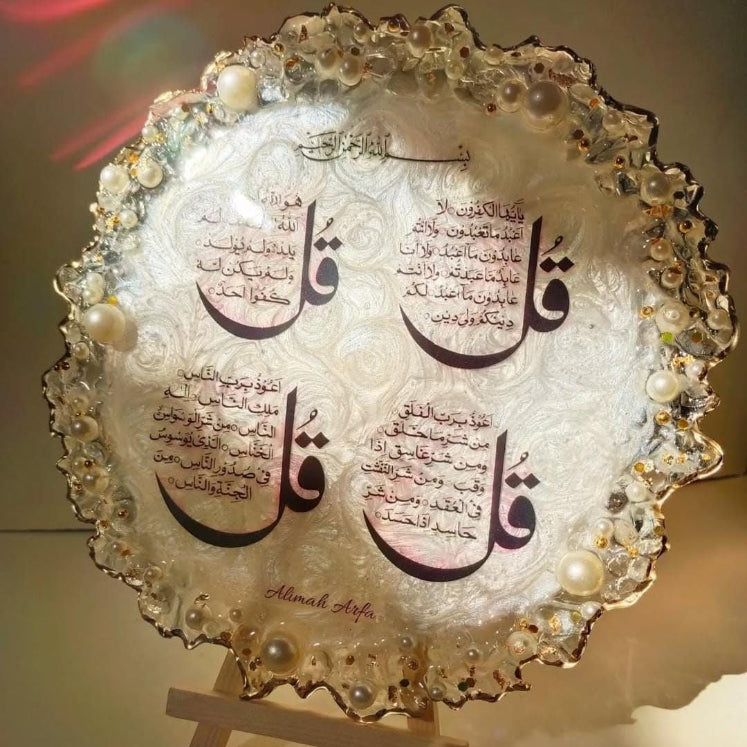 بِسْمِ اللهِ الرَّحْمٰنِ الرَّحِيْمِ
قُلْ
يٰٓاَيُّهَا الْكٰفِرُوْنَ ۙ لَآ
اَعْبُدُ مَا تَعْبُدُوْنَ ۙ وَلَآ اَنْتُمْ
عٰبِدُوْنَ مَآ اَعْبُدُ ۚ وَلَآ اَنَا
عَابِدٌ مَّا عَبَدْتُّمْ ۙ وَلَآ اَنْتُمْ
عٰبِدُوْنَ مَآ اَعْبُدُ ۗ لَكُمْ
دِيْنُكُمْ وَلِيَ دِيْنِ
قُلْ
هُوَ اللّٰهُ
اَللّٰهُ لَمْ
يَلِدْ ۙ وَلَمْ يُوْلَدْ ۙ
وَلَمْ يَكُنْ لَّهٗ
كُفُوًا اَحَدٌ
قُلْ
اَعُوْذُ بِرَبِّ الْفَلَقِ ۙ
مِنْ شَرِّ مَا خَلَقَ ۙ
وَمِنْ شَرِّ غَاسِقٍ اِذَا
وَقَبَ ۙ وَمِنْ شَرِّ النَّفّٰثٰتِ
فِى الْعُقَدِ ۙ وَمِنْ شَرِّ
حَاسِدٍ اِذَا حَسَدَ
قُلْ
اَعُوْذُ بِرَبِّ النَّاسِ ۙ
مَلِكِ النَّاسِ ۙ اِلٰهِ
النَّاسِ ۙ مِنْ شَرِّ الْوَسْوَاسِ
الْخَنَّاسِ ۙ الَّذِيْ يُوَسْوِسُ
فِيْ صُدُوْرِ النَّاسِ ۙ مِنَ
الْجِنَّةِ وَالنَّاسِ
Alimah Arfa